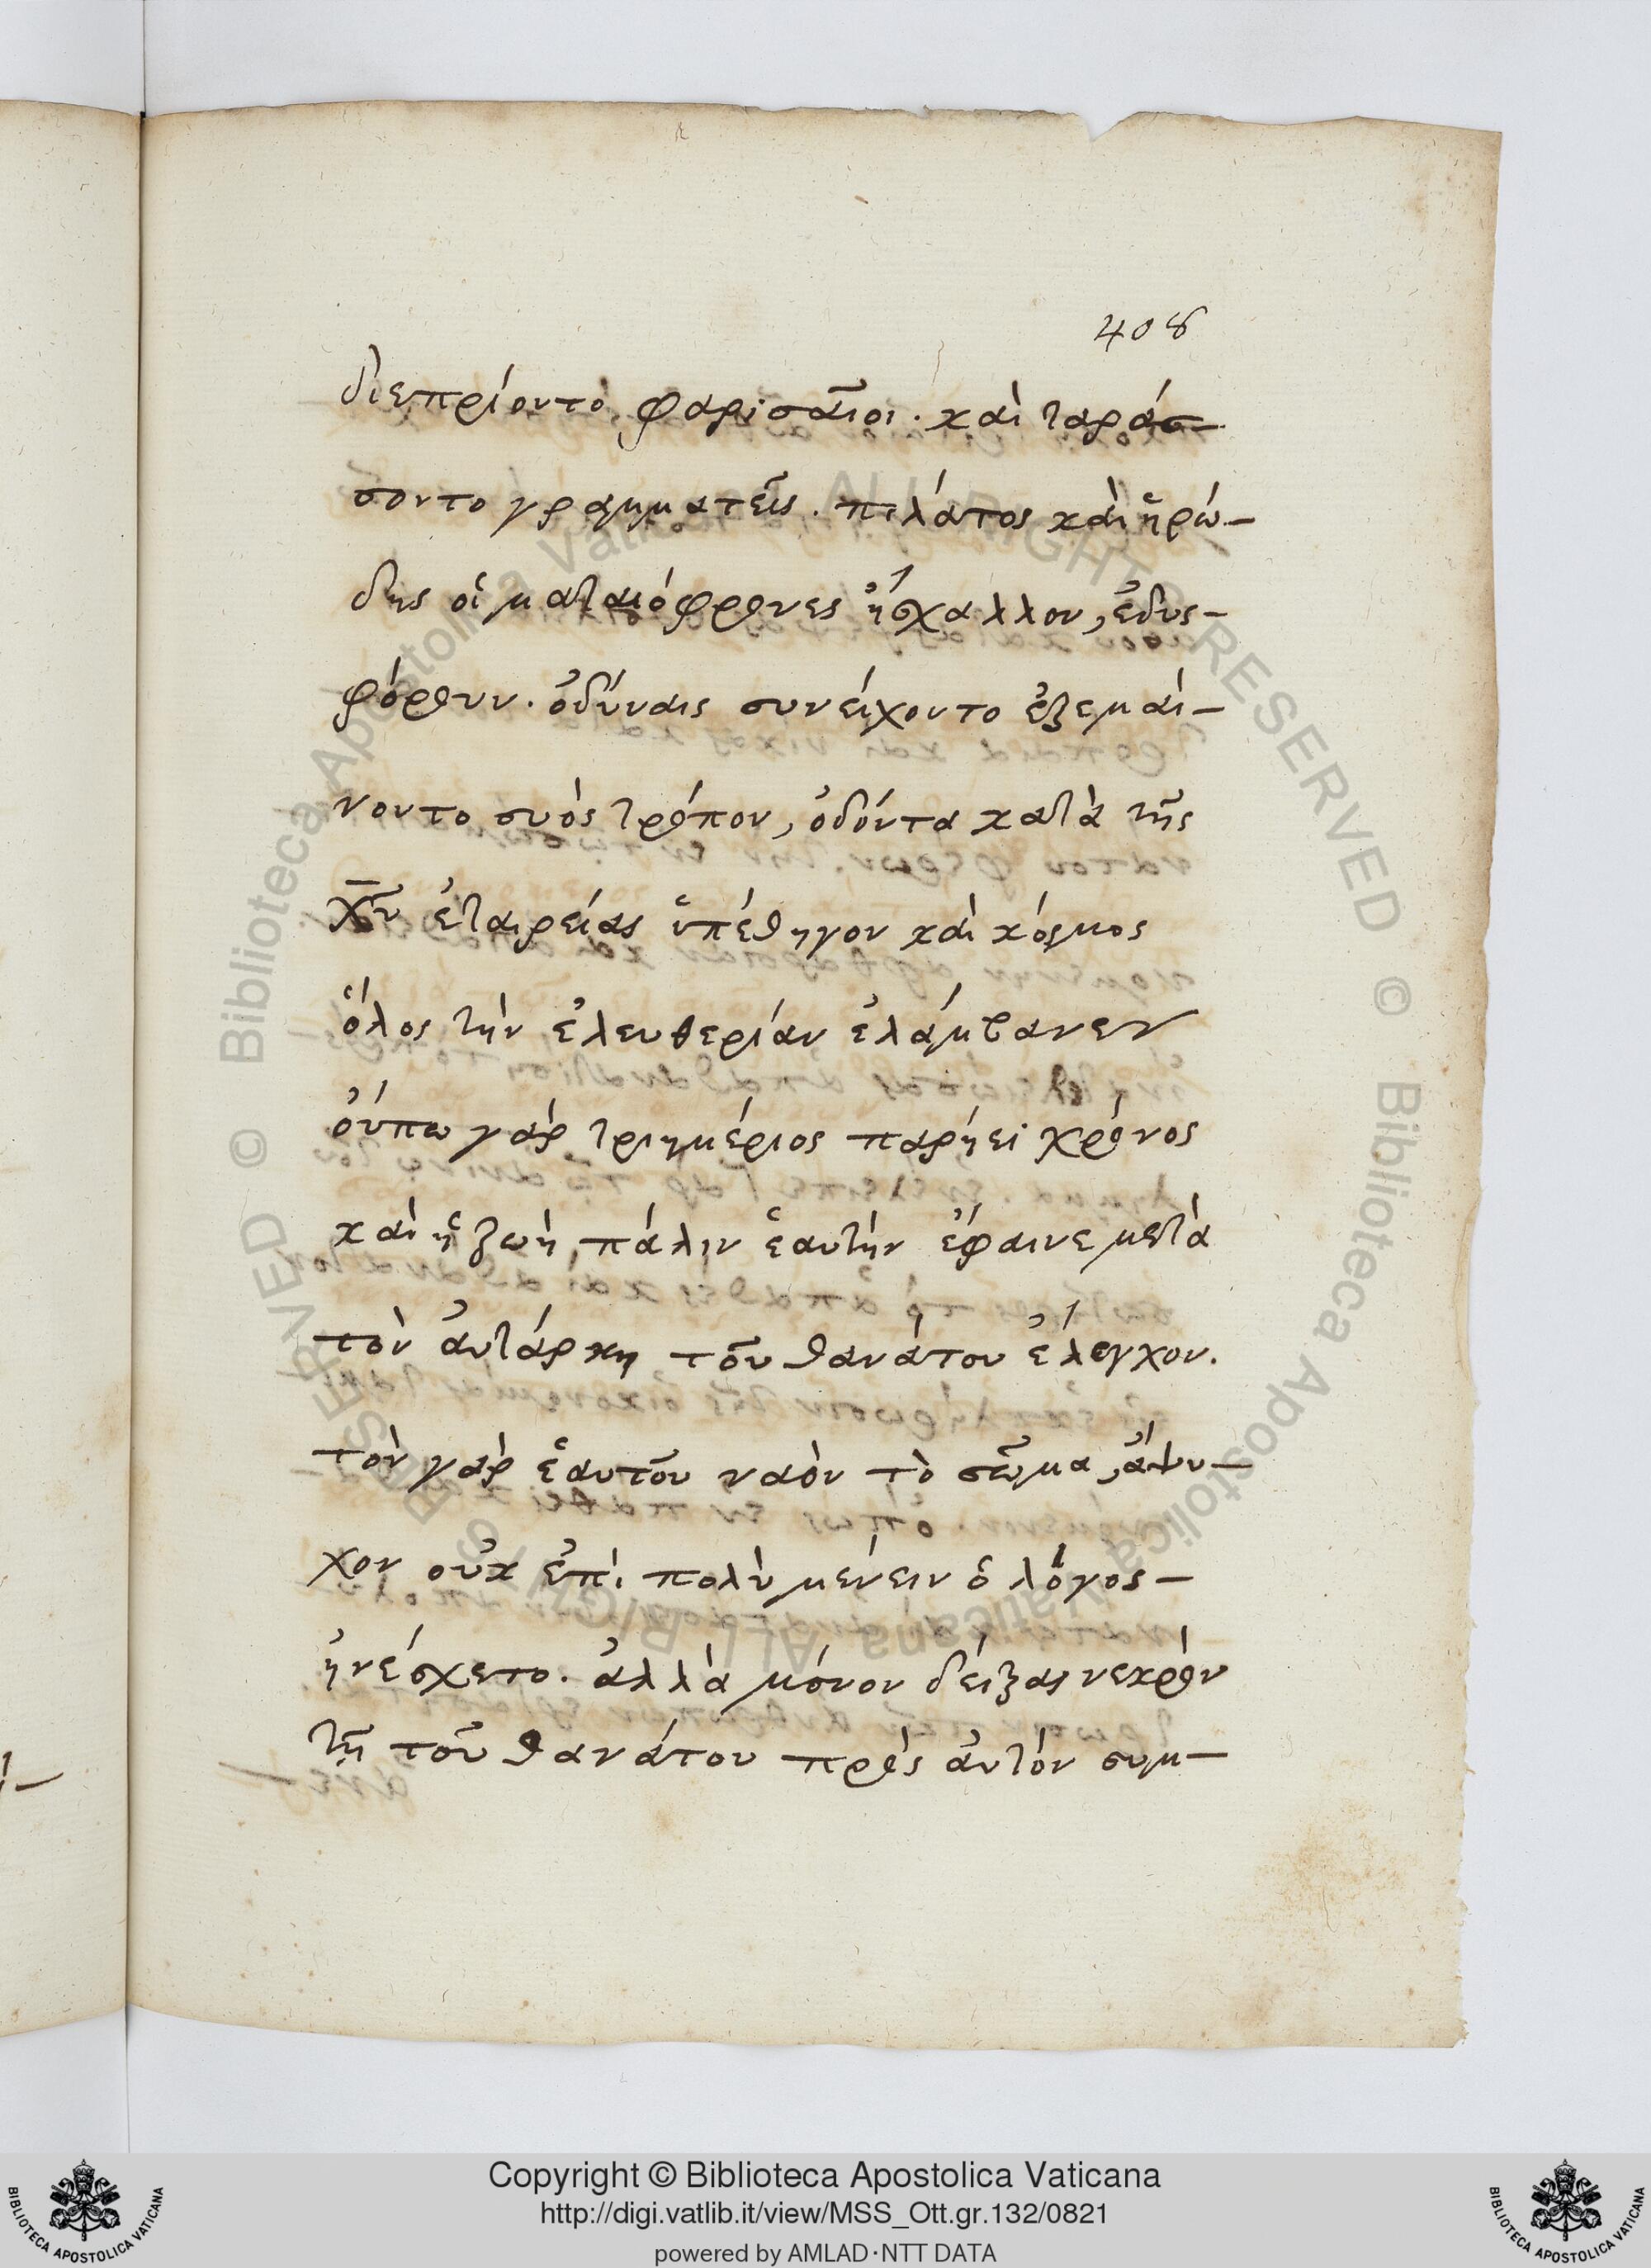 408
διεπρίοντο φαρισαῖοι. καὶ ταράσ-
σοντο γραμματεῖς. πιλάτος καὶ ἡρώ-
δης οἱ ματαιόφρονες ἤσχαλλον, ἐδυς-
φόρουν. ὀδύναις συνείχοντο ἐξεμαί-
νοντο συὸς τρόπον, ὀδόντα κατὰ τῆς
χ̅υ̅ ἑταιρείας ὑπέθηγον καὶ κόσμος
ὅλος τὴν ἐλευθερίαν ἐλάμβανεν
οὔπω γὰρ τριημέριος παρήει χρόνος
καὶ ἡ ζωὴ πάλιν ἑαυτὴν ἔφαινε μετὰ
τὸν ἀυτάρκη τοῦ θανάτου ἔλεγχον.
τὸν γὰρ ἑαυτοῦ ναὸν τὸ σῶμα, ἄψυ-
χον οὐκ ἐπὶ πολὺ μένειν ὁ λόγος-
ἠνέσχετο. ἀλλὰ μόνον δείξας νεκρὸν
τῇ τοῦ θανάτου πρὸς ἀυτὸν συμ-
Copyright © Biblioteca Apostolica Vaticana
http://digi.vatlib.it/view/MSS_Ott.gr.132/0821
powered by AMLAD·NTT DATA
BIBLIOTECA APOSTOLICA VATICANA
BIBLIOTECA APOSTOLICA VATICANA
© Biblioteca Apostolica Vaticana ALL RIGHTS RESERVED
© Biblioteca Apostolica Vaticana ALL RIGHTS RESERVED